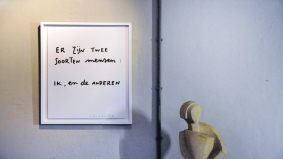 ER ZIJN TWEE
SOORTEN mensen:
IK, en de ANDEREN